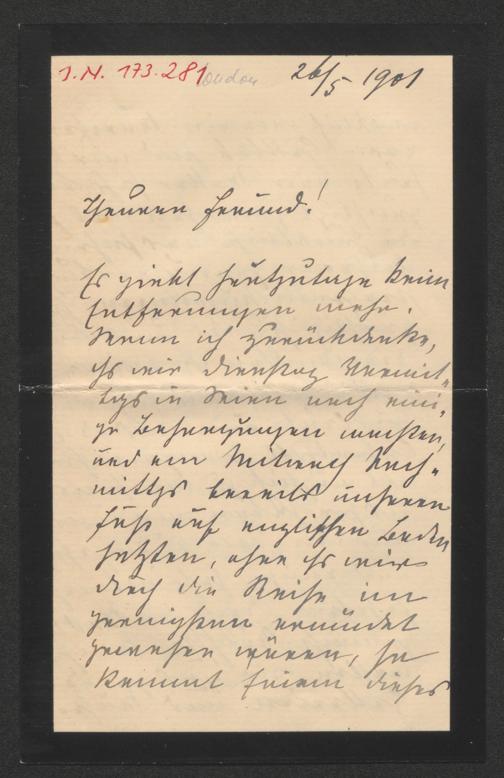 I.N. 173.281 London 26/5 1901
Theurer Freund!
Es giebt heutzutage keine
Entfernungen mehr.
Wenn ich zurückdenke,
daß wir Dienstag Vormit-
tags in Wien noch eini-
ge Besorgungen machten,
und am Mitwoch Nach-
mittags bereits unseren
Fuß auf englischen Boden
setzten, ohne daß wir
durch die Reise im
geringsten ermüdet
gewesen wären, so
kommt einem dieses